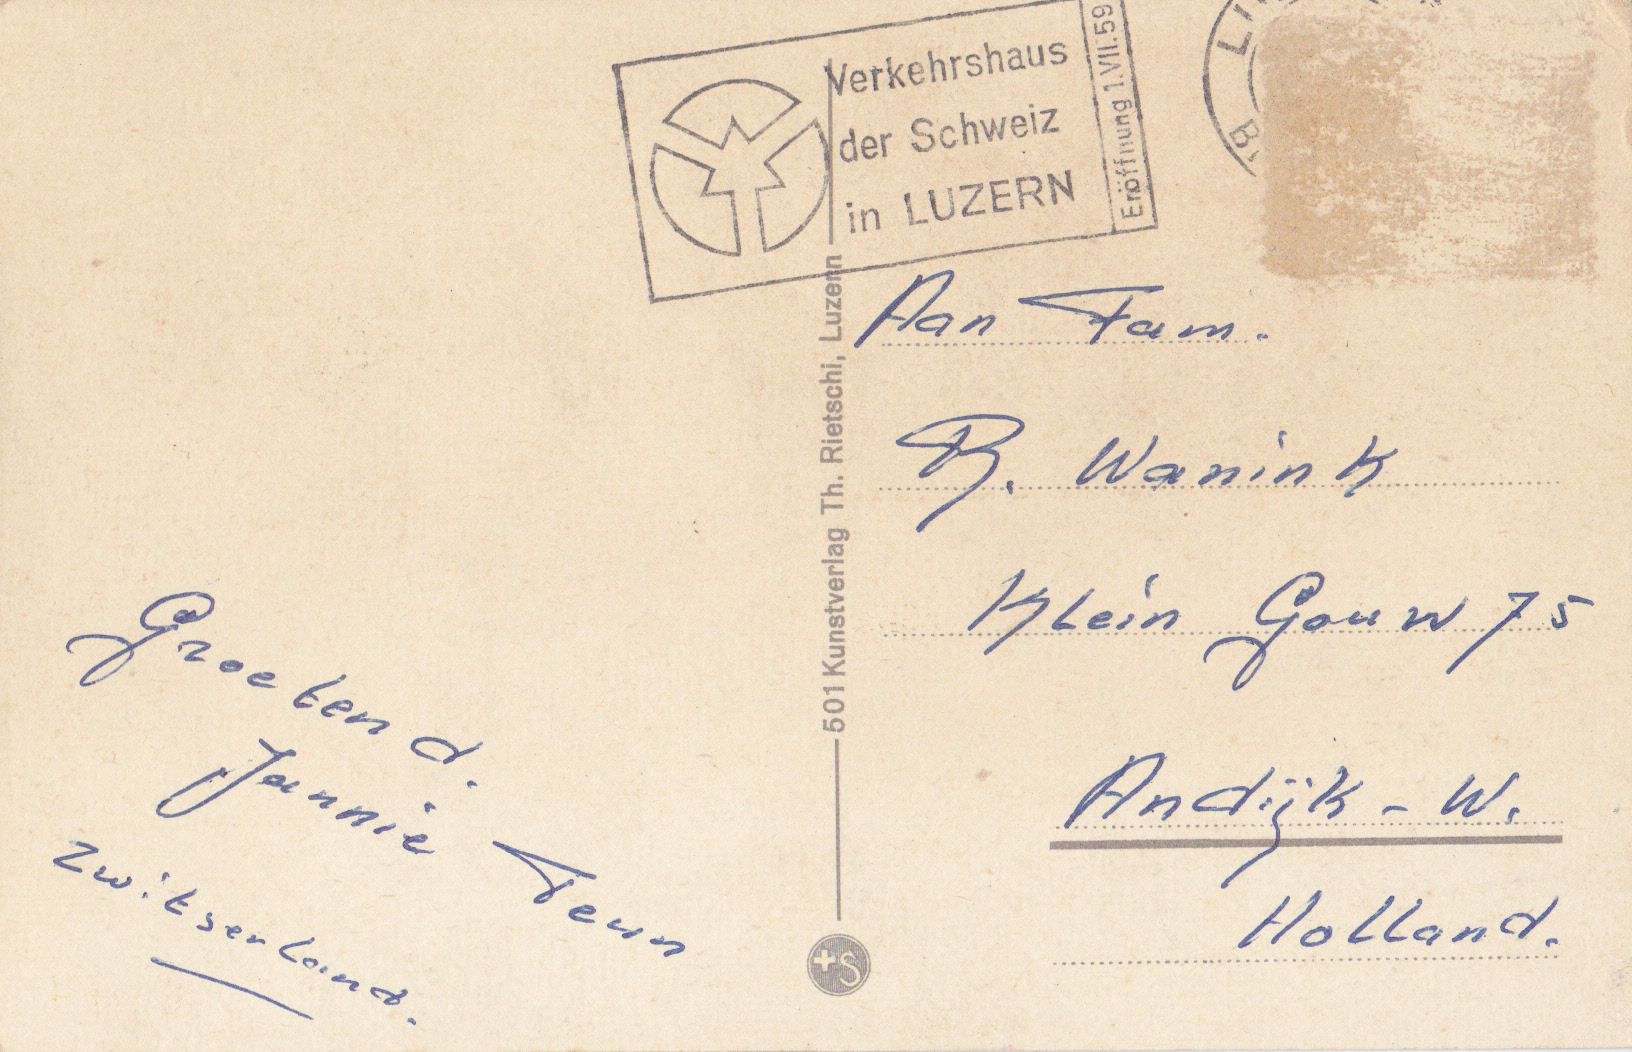 Verkehrshaus
der Schweiz
in LUZERN
Eröffnung 1.VII.59
501 Kunstverlag Th. Rietschi, Luzern
Groeten d.
Jannie Teun
Zwitserland.
Aan Fam.
R. Wanink
Klein Gouw 75
Andijk - W.
Holland.